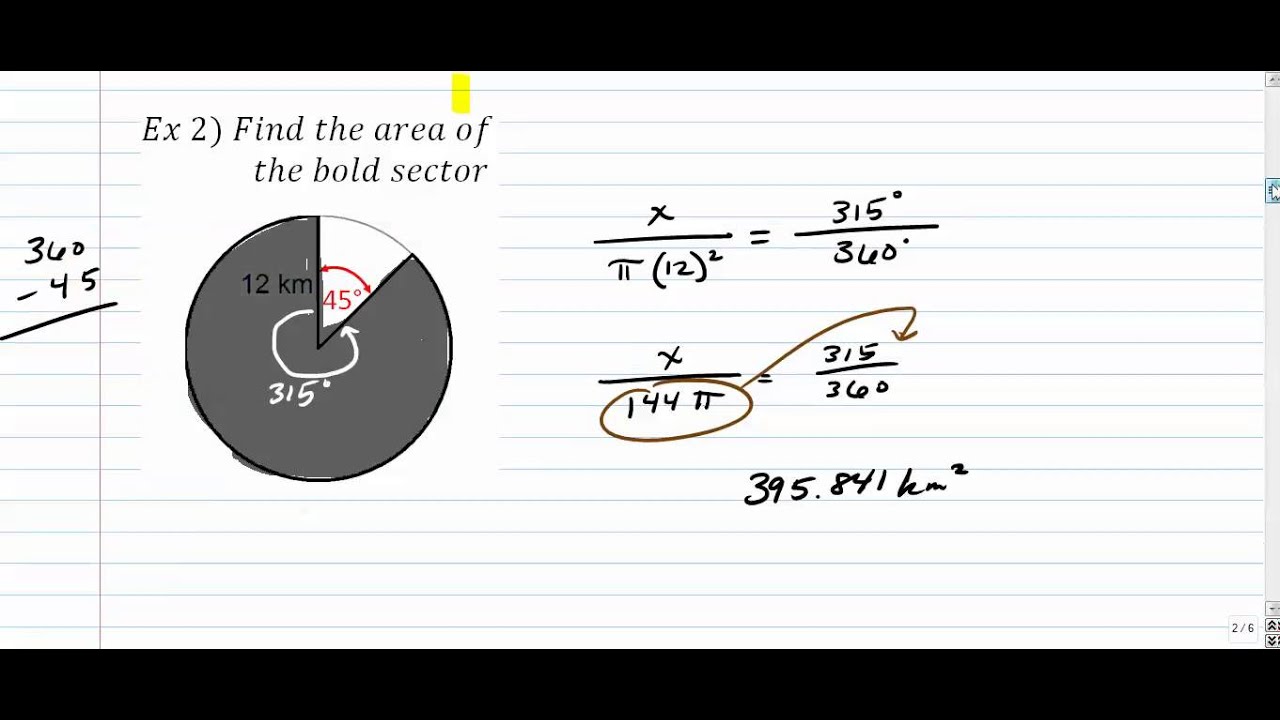 Ex 2) Find the area of
the bold sector
360
- 45
12 km
45°
315°
x / π (12)² = 315° / 360°
x / 144 π = 315 / 360
395.841 km²
2 / 6